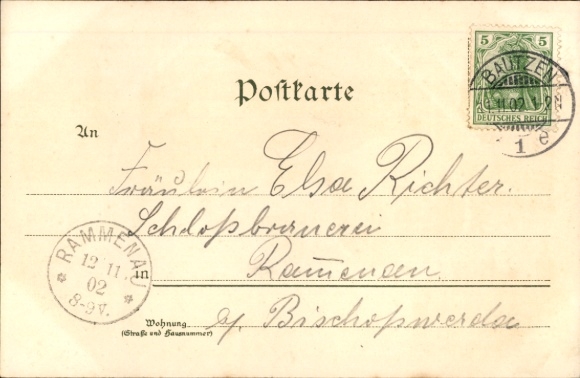 5 5
BAUTZEN
11.11.02. 1-2
DEUTSCHES REICH
1 e
Postkarte
An
Fräulein Elsa Richter.
Schloßbrauerei
RAMMENAU
12 11.
02
8-9V.
in
Ram̅enau.
Wohnung
(Straße und Hausnummer)
b/ Bischofswerda